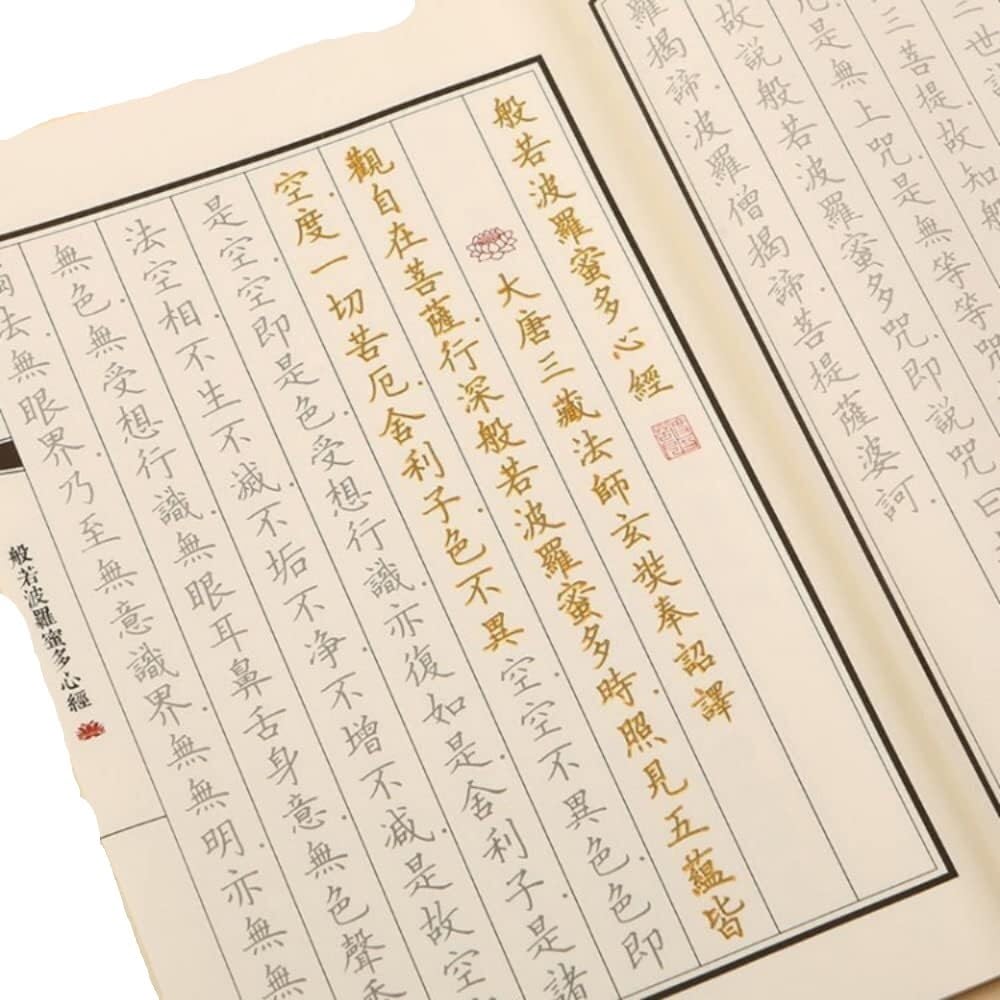 世
三菩提故知般
是無上咒是無等等咒
故說般若波羅蜜多咒即說咒曰
羅揭諦波羅僧揭諦菩提薩婆訶
般若波羅蜜多心經
大唐三藏法師玄奘奉詔譯
觀自在菩薩行深般若波羅蜜多時照見五蘊皆
空度一切苦厄舍利子色不異空空不異色色即
是空空即是色受想行識亦復如是舍利子是諸
法空相不生不滅不垢不净不增不減是故空
無色無受想行識無眼耳鼻舌身意無色聲香
法無眼界乃至無意識界無無明亦無無
般若波羅蜜多心經